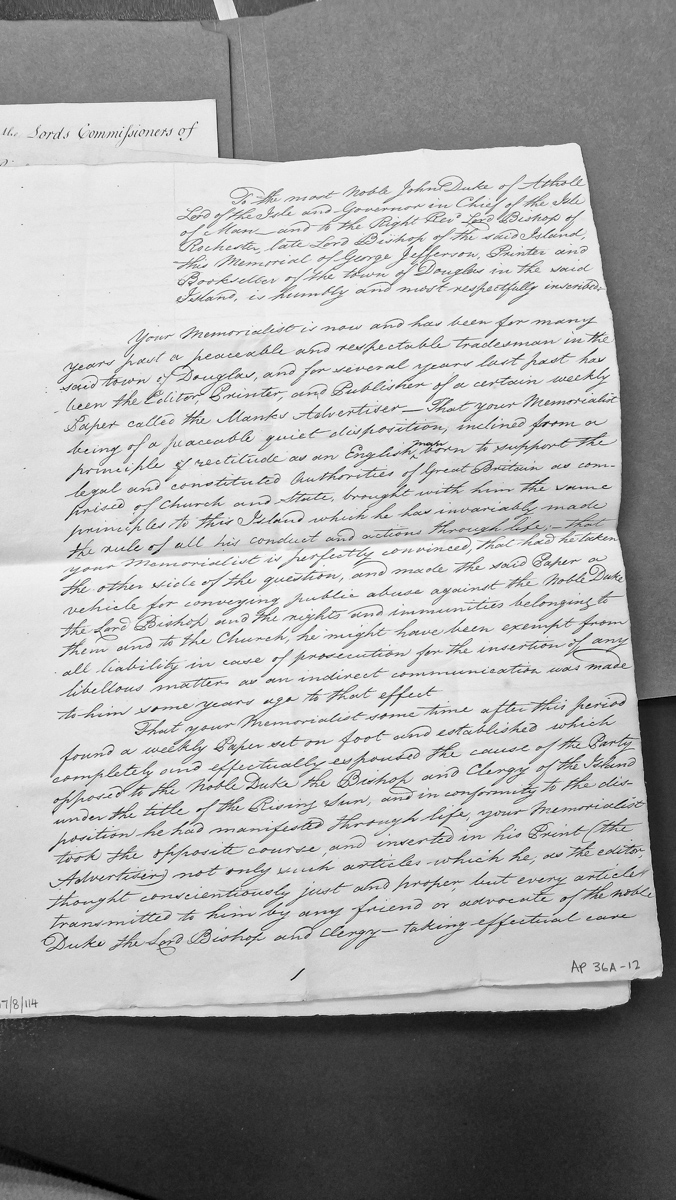 the Lords Commissioners of
To the most Noble John Duke of Atholl
Lord of the Isle and Governor in Chief of the Isle
of Man and to the Right Revd Lord Bishop of
Rochester, late Lord Bishop of the said Island,
this Memorial of George Jefferson, Printer and
Bookseller of the town of Douglas in the said
Island, is humbly and most respectfully inscribed,
Your Memorialist is now and has been for many
years past a peaceable and respectable tradesman in the
said town of Douglas, and for several years last past has
been the Editor, Printer, and Publisher of a certain weekly
Paper called the Manks Advertiser — That your Memorialist
being of a peaceable quiet disposition, inclined from a
principle of rectitude as an English man born to support the
legal and constituted Authorities of Great Britain as com-
prised of Church and State, brought with him the same
principles to this Island which he has invariably made
the rule of all his conduct and actions through life; — that
your Memorialist is perfectly convinced, that had he taken
the other side of the question, and made the said Paper a
vehicle for conveying public abuse against the Noble Duke
the Lord Bishop and the rights and immunities belonging to
them and to the Church, he might have been exempt from
all liability in case of prosecution for the insertion of any
libellous matter, as an indirect communication was made
to him some years ago to that effect
That your Memorialist some time after this period
found a weekly Paper set on foot and established which
completely and effectually espoused the cause of the Party
opposed to the Noble Duke the Bishop and Clergy of the Island
under the title of the Rising Sun, and in conformity to the dis-
position he had manifested through life, your Memorialist
took the opposite course and inserted in his Print (the
Advertiser) not only such articles which he, as the editor,
thought conscientiously just and proper but every article
transmitted to him by any friend or advocate of the noble
Duke the Lord Bishop and Clergy — taking effectual care
1
AP 36A-12
7/8/114